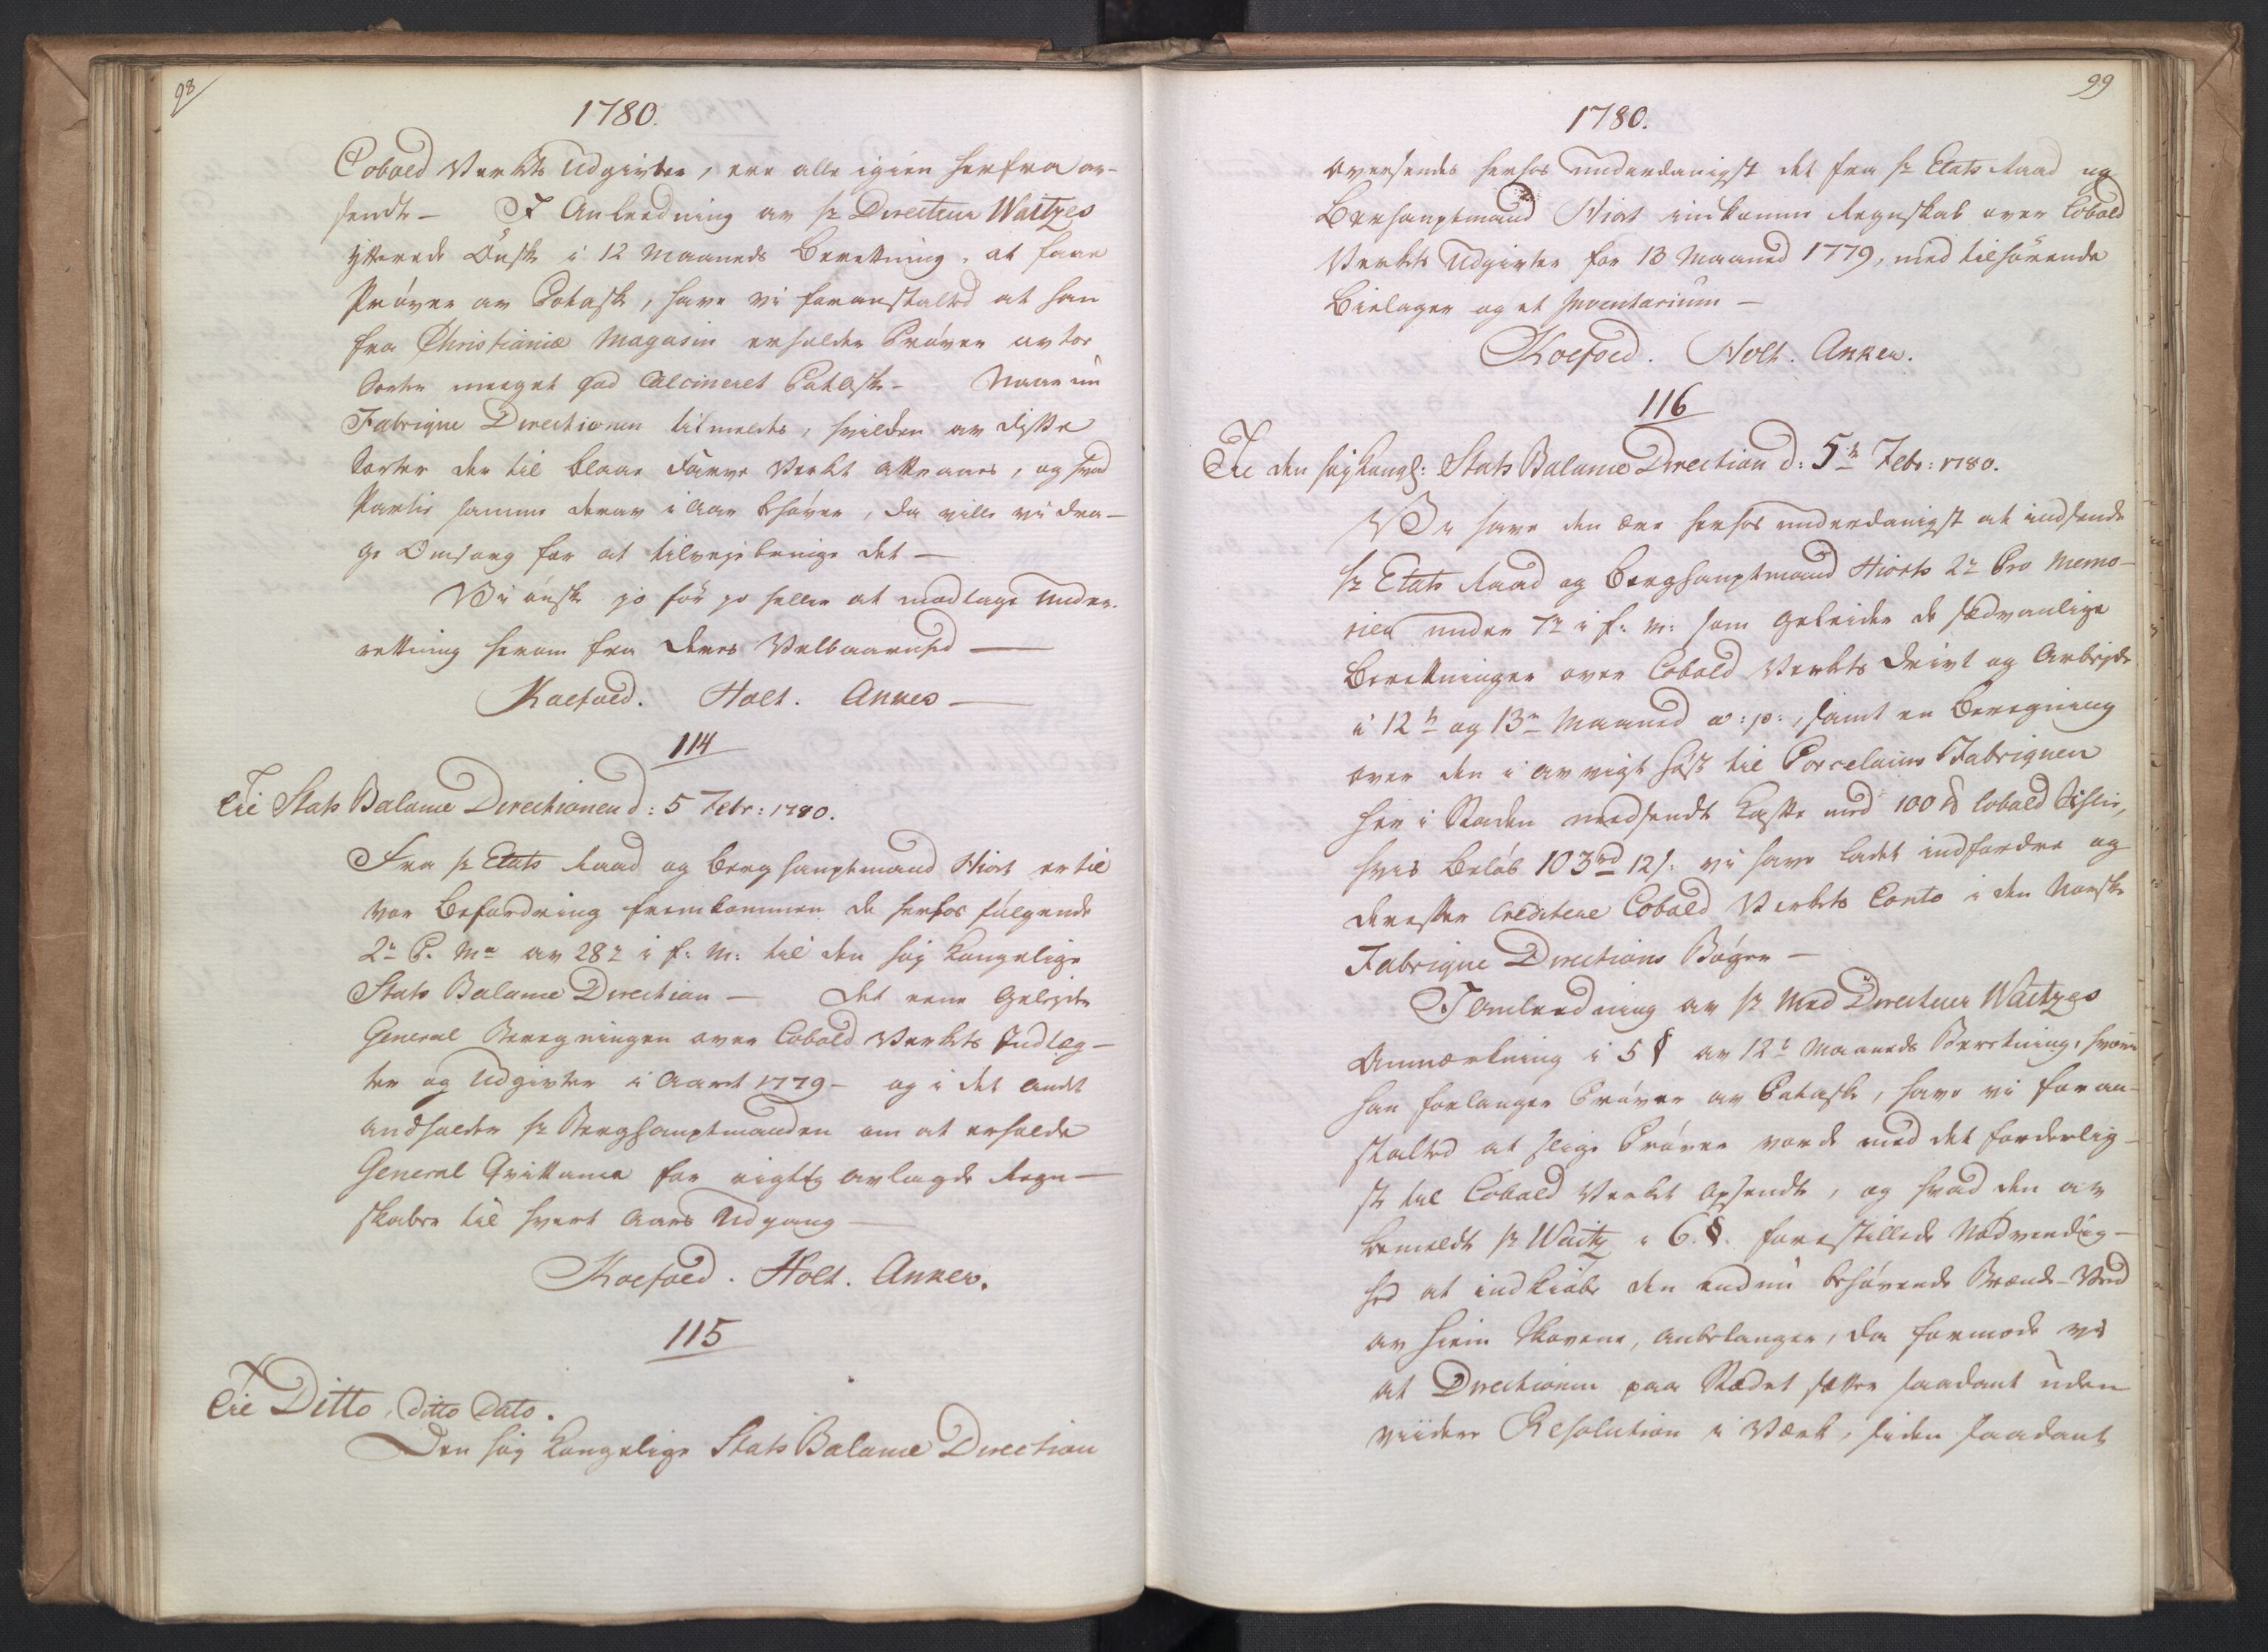 98
1780.
Cobold Verkts Udgivter, ere alle igien herfra av-
sendt - I Anleedning av hr Directeur Waitzes
ytterede Ønske i 12 Maaneds Beretning, at faae
Prøver av Potaske, have vi foranstalted at han
fra Christiania Magasin erholder Prøver av tor
Sorter meeget god Calcineret Potaske - Naar nu
Fabrique Directionen tilmeldes, hvilken av disse
Sorter der til blaae Farve Verket attraaes, og hvad
Partie samme derav i Aar behøver, da ville vi dra-
ge Omsorg for at tilvejebringe det -
Vi ønske jo før jo heller at modtage Under-
retning herom fra Deres Velbaarenhed -
Koefoed. Holt. Anker -
114
Til Stats Balance Directionen d: 5 Febr: 1780.
Fra hr Etats Raad og Berghauptmand Hiort er til
vor Befordring fremkommen de herhos følgende
2de P. Ma av 28de i f: M: til den høj Kongelige
Stats Balance Direction - Det eene Geleyder
General Beregningen over Cobold Verkets Indtæg-
ter og Udgivter i Aaret 1779 - og i det andet
andholder hr Berghauptmanden om at erholde
General Qvittance for rigtig avlagde Regn-
skaber til hvert Aars Udgang -
Koefoed. Holt. Anker.
115
Til Ditto, Ditto Dato.
Den høj Kongelige Stats Balance Direction
99
1780.
oversendes herhos underdanigst det fra hr Etats Raad og
Berghauptmand Hiort indkomne Regnskab over Cobold
Verkets Udgivter for 13 Maaned 1779, med tilhørende
Bielager og et Inventarium -
Koefoed. Holt. Anker.
116
Til den høj Kongl: Stats Balance Direction d: 5te Febr: 1780.
Vi have den Ære herhos underdanigst at indsende
hr Etats Raad og Berghauptmand Hiorts 2de Pro Memo-
rier under 7de i f: M: som geleider de sædvanlige
Beretninger over Cobold Verkets Drivt og Arbejde
i 12te og 13de Maaned a: p:, samt en Beregning
over den i avvigt Høst til Porcelains Fabriquen
her i Staden nedsendt Kasse med 100 ℔ Cobold Schlie,
hvis Beløb 103 rd 12 s: vi have ladet indfordre og
derefter Creditere Cobold Verkets Conto i den Norske
Fabrique Directions Bøger -
I Anleedning av hr Med Directeur Waitzes
Anmærkning i 5 § av 12te Maaneds Beretning, hvori
han forlanger Prøver av Potaske, have vi foran-
stalted at slige Prøver vorde med det forderlig-
ste til Cobold Verket opsendt, og hvad den av
bemeldte hr Waitz i 6. §. forestillede Nødvendig-
hed at indkiøbe den endnu behøvende Brænde-Ved
av hiem Skovene, anbelanger, da formode vi
at Directionen paa Stædet sætter saadant uden
viidere Resolution i Værk, siden saadant